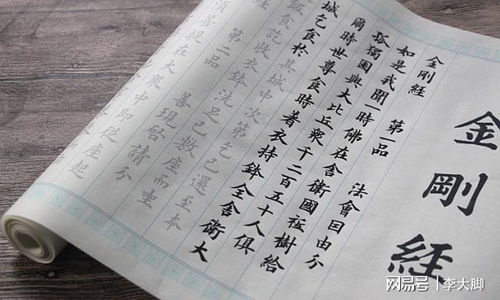 金剛経
金剛經 第一品 法會因由分
如是我聞一時佛在舍衛國祗樹給
孤獨園與大比丘眾千二百五十人俱
爾時世尊食時著衣持鉢入舍衛大
城乞食於其城中次第乞已還至本
飯食訖收衣鉢洗足已敷座而坐
第二品 善現啟請分
菩提在大眾中即從座起
网易号 | 李大脚